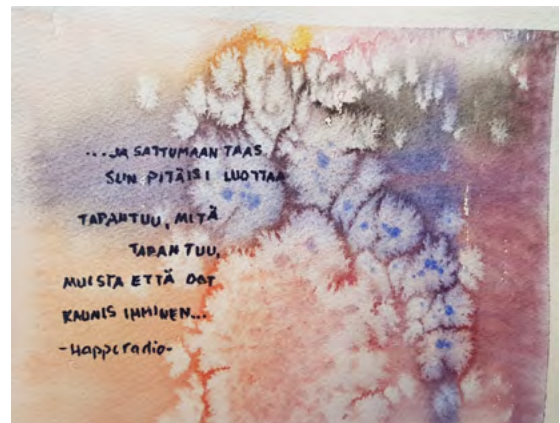 ...JA SATTUMAAN TAAS
SUN PITÄISI LUOTTAA
TAPAHTUU, MITÄ
TAPAHTUU,
MUISTA ETTÄ OOT
KAUNIS IHMINEN...
-Happoradio-